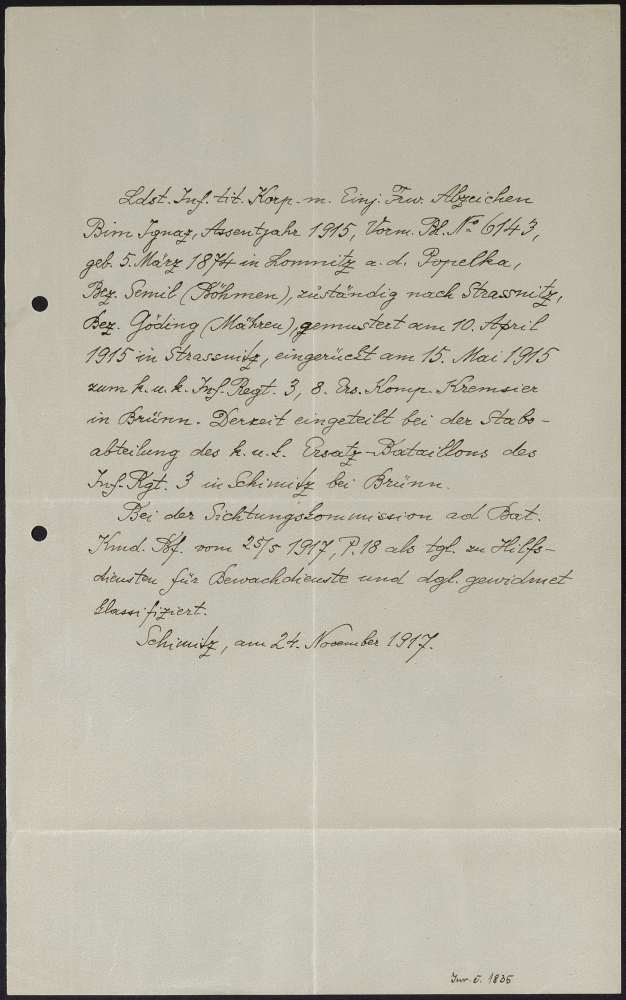 Ldst. Inf. tit. Korp. m. Einj. Frw. Abzeichen
Bim Ignaz, Assentjahr 1915, Vorm. Bl. No 6143,
geb. 5. März 1874 in Lomnitz a. d. Popelka,
Bez. Semil (Böhmen), zuständig nach Strassnitz,
Bez. Göding (Mähren), gemustert am 10. April
1915 in Strassnitz, eingerückt am 15. Mai 1915
zum k. u. k. Inf. Regt. 3, 8. Ers. Komp. Kremsier
in Brünn. Derzeit eingeteilt bei der Stabs-
abteilung des k. u. k. Ersatz-Bataillons des
Inf. Rgt. 3 in Schimitz bei Brünn.
Bei der Sichtungskommission ad Bat.
Kmd. Bf. vom 25/5 1917, P. 18 als tgl. zu Hilfs-
diensten für Bewachdienste und dgl. gewidmet
klassifiziert.
Schimitz, am 24. November 1917.
Inv. č. 1835